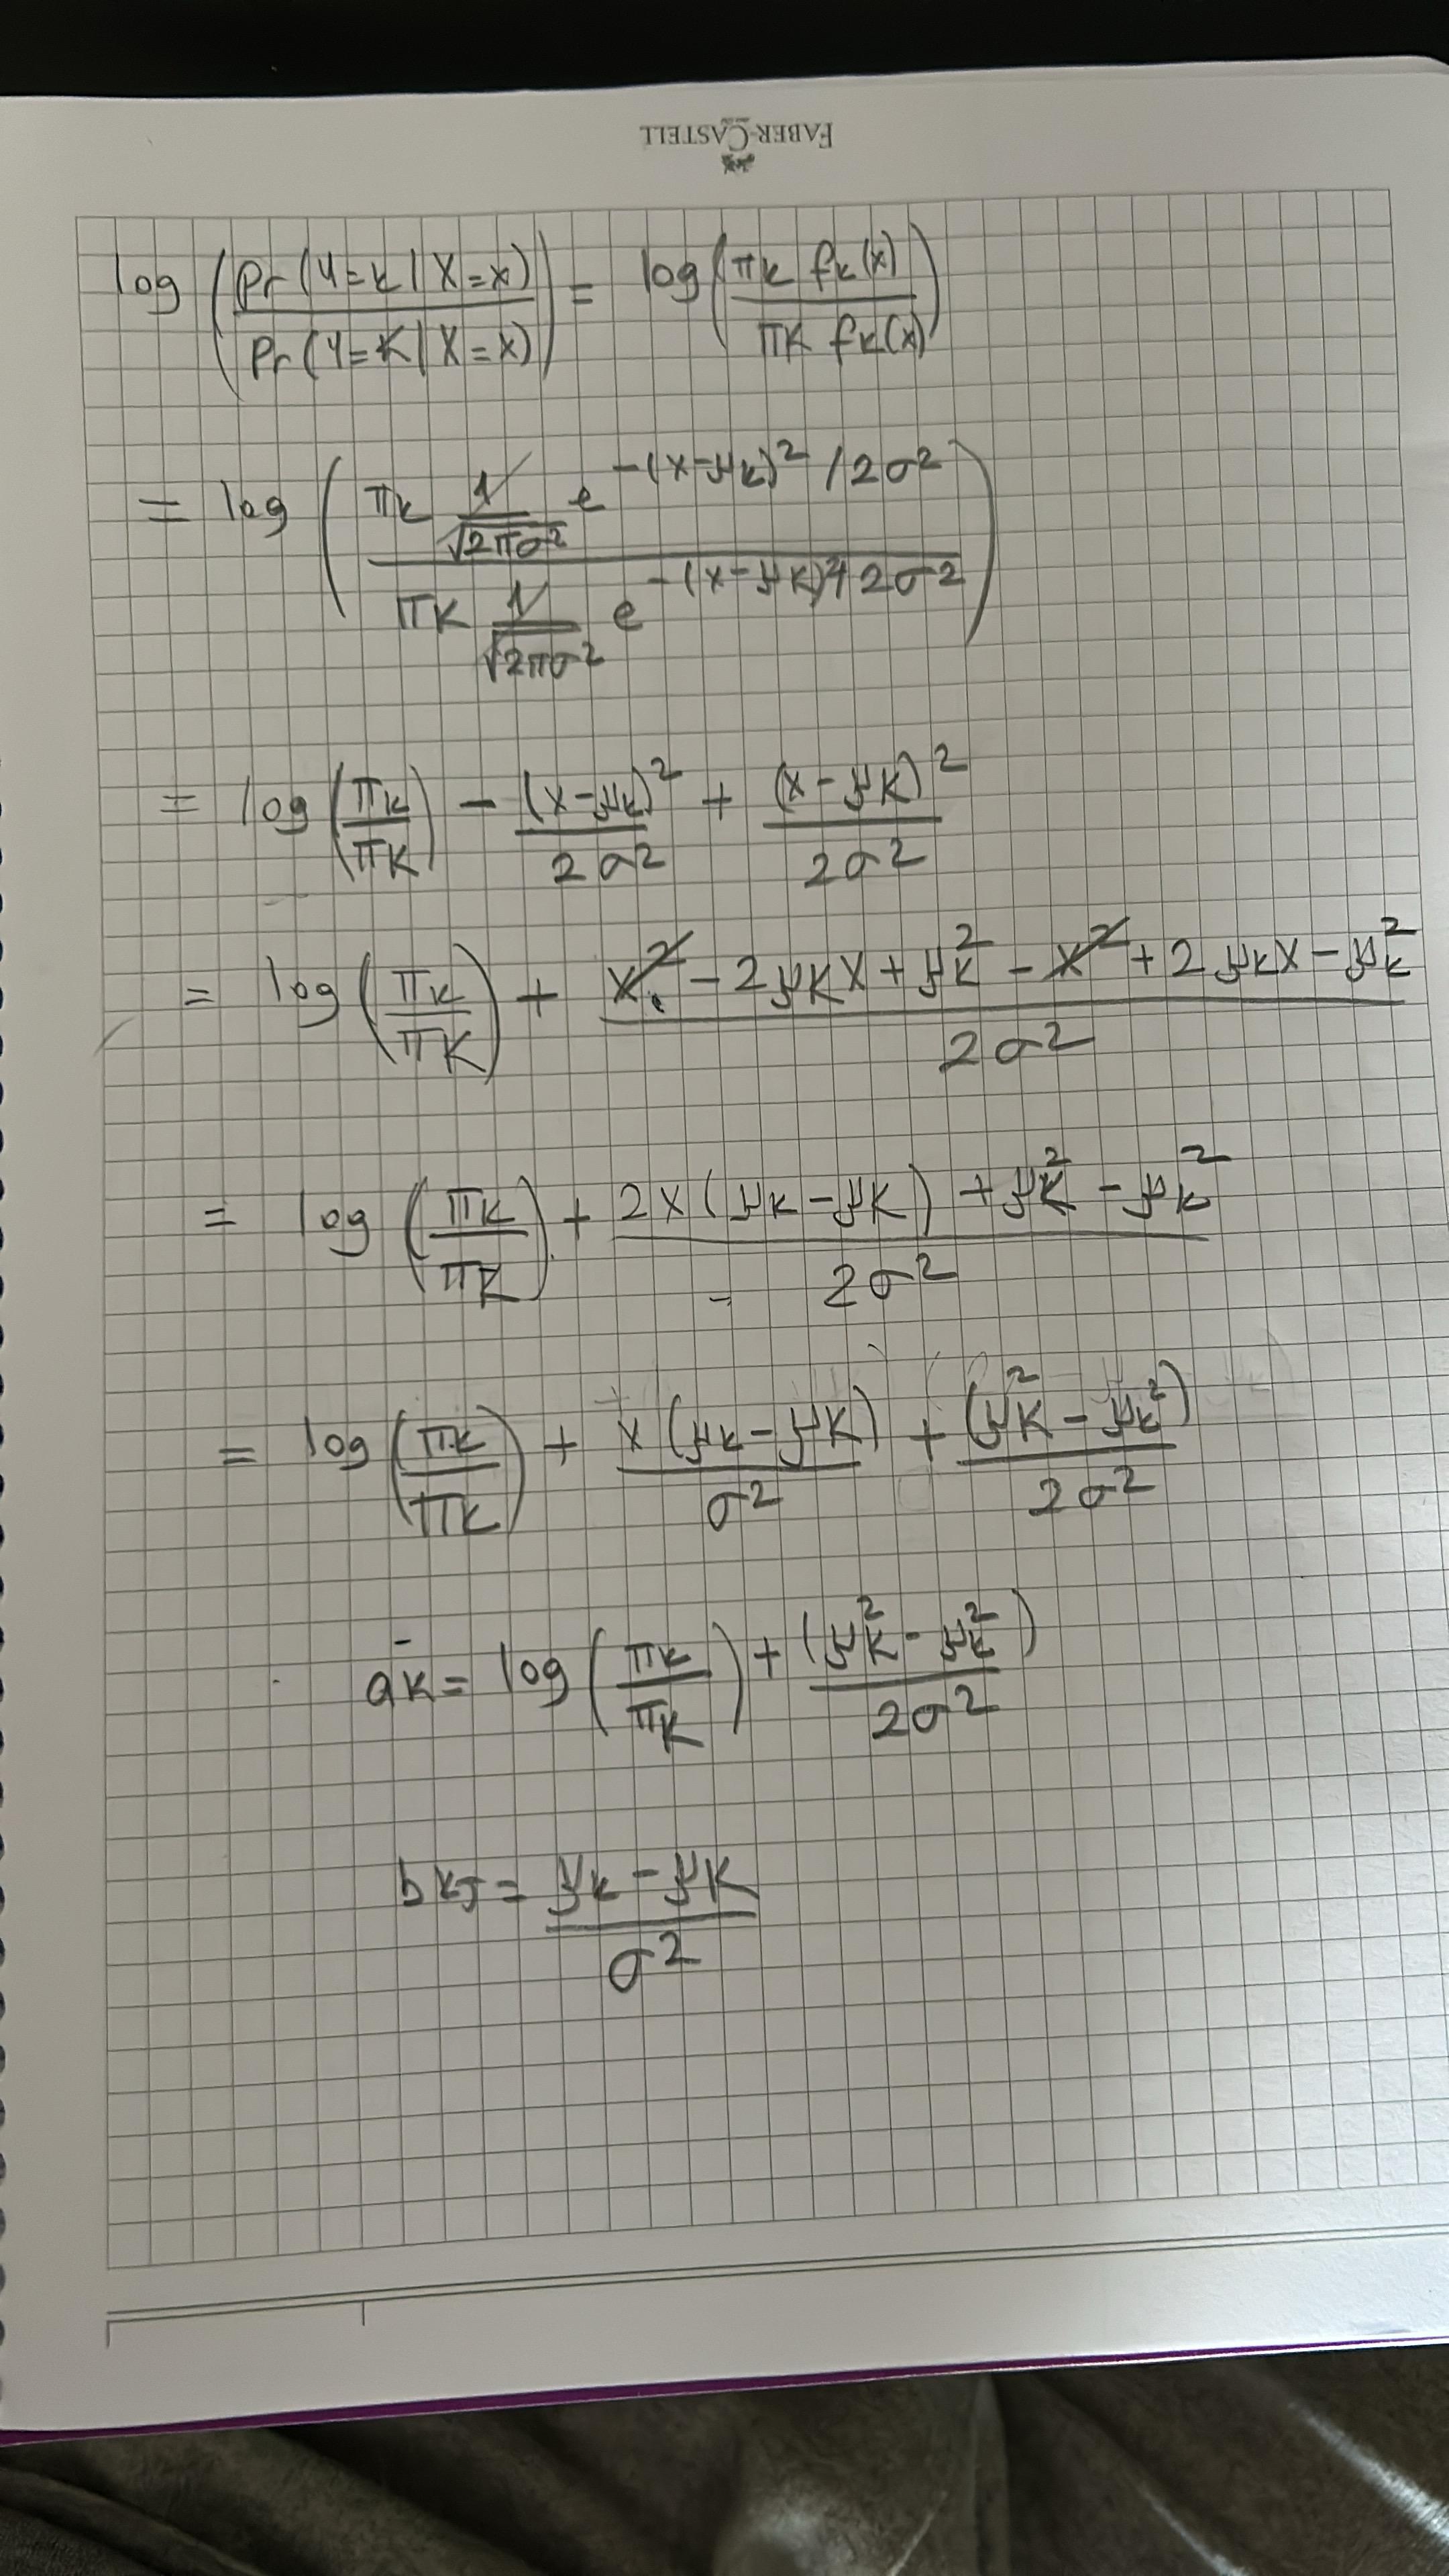 FABER-CASTELL
log (Pr(Y=k | X=x) / Pr(Y=K | X=x)) = log (πk fk(x) / πK fK(x))
= log (πk 1/√2πσ² e^-(x-μk)²/2σ² / πK 1/√2πσ² e^-(x-μK)²/2σ²)
= log (πk/πK) - (x-μk)²/2σ² + (x-μK)²/2σ²
= log (πk/πK) + (x² - 2μKx + μK² - x² + 2μkx - μk²)/2σ²
= log (πk/πK) + (2x(μk-μK) + μK² - μk²)/2σ²
= log (πk/πK) + x(μk-μK)/σ² + (μK² - μk²)/2σ²
ak = log (πk/πK) + (μK² - μk²)/2σ²
bkJ = (μk - μK)/σ²